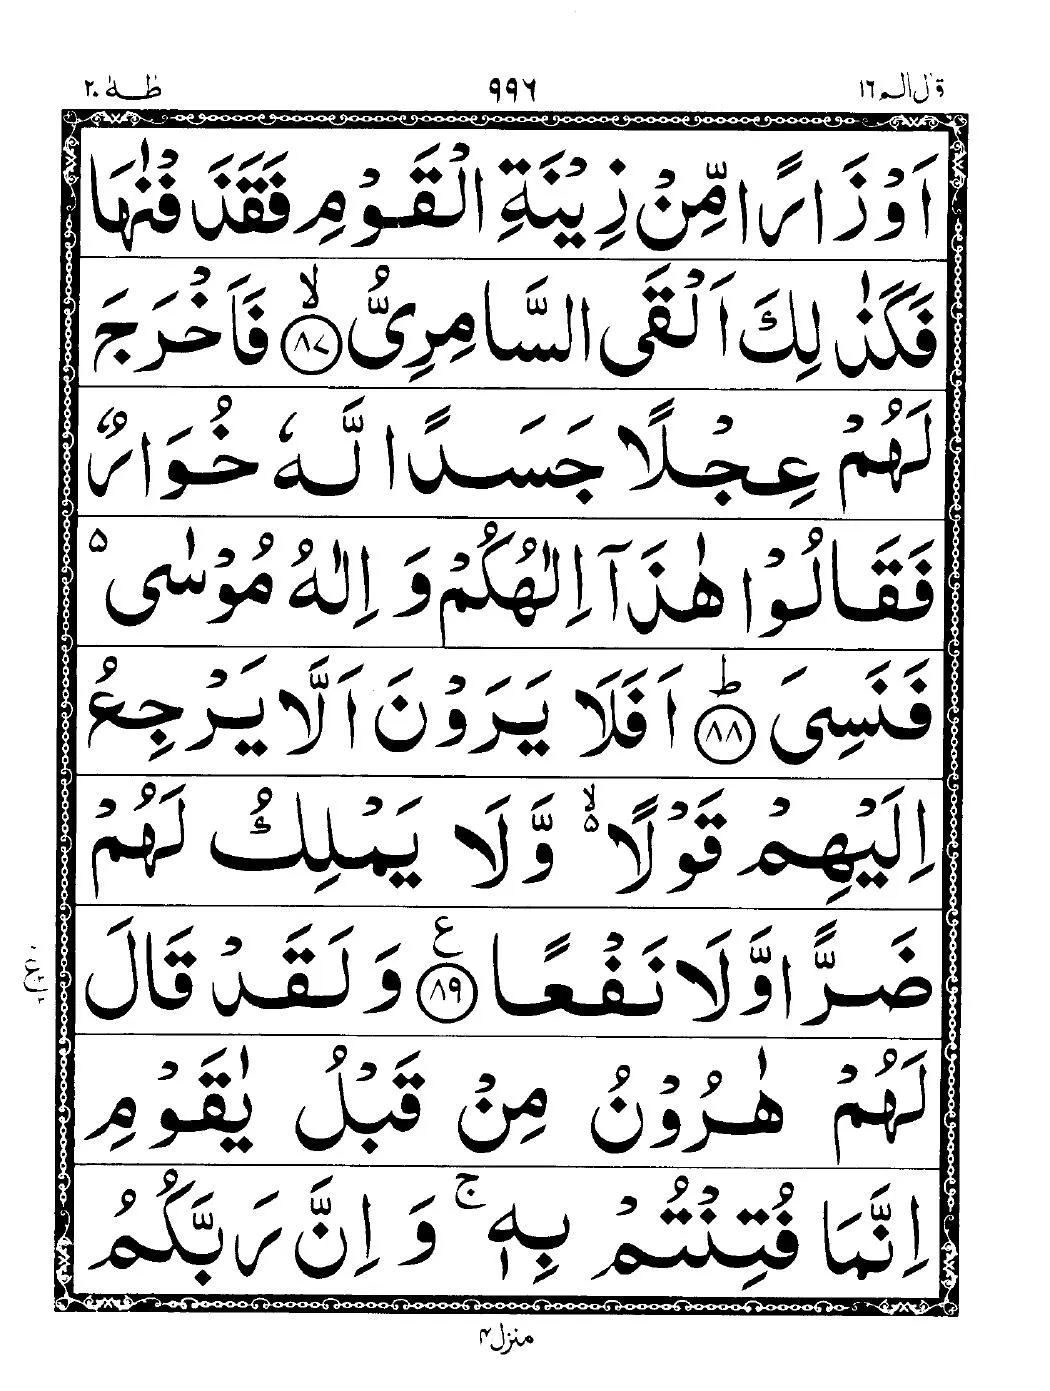 قال الم ١٦ ٩٩٦ طٰهٰ ٢٠
اَوْزَارًا مِّنْ زِيْنَةِ الْقَوْمِ فَقَذَفْنٰهَا
فَكَذٰلِكَ اَلْقَى السَّامِرِىُّ ۙ﴿٨٧﴾ فَاَخْرَجَ
لَهُمْ عِجْلًا جَسَدًا لَّهٗ خُوَارٌ
فَقَالُوْا هٰذَاۤ اِلٰهُكُمْ وَ اِلٰهُ مُوْسٰى ۵
فَنَسِىَ ؕ﴿٨٨﴾ اَفَلَا يَرَوْنَ اَلَّا يَرْجِعُ
اِلَيْهِمْ قَوْلًا ۙ۵ وَّلَا يَمْلِكُ لَهُمْ
ضَرًّا وَّلَا نَفْعًا ﴿٨٩﴾ ع وَ لَقَدْ قَالَ
لَهُمْ هٰرُوْنُ مِنْ قَبْلُ يٰقَوْمِ
اِنَّمَا فُتِنْتُمْ بِهٖ ۚ وَ اِنَّ رَبَّكُمُ
منزل ٤